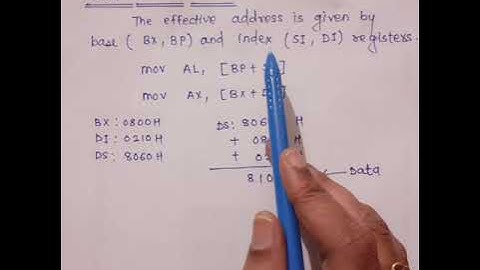 The effective address is given by
base ( BX, BP) and index (SI, DI) registers.
mov AL, [BP+
mov AX, [BX+
BX : 0800H
DI : 0210H
DS : 8060H
DS: 806 H
+ 08 H
+ 02
810
Data